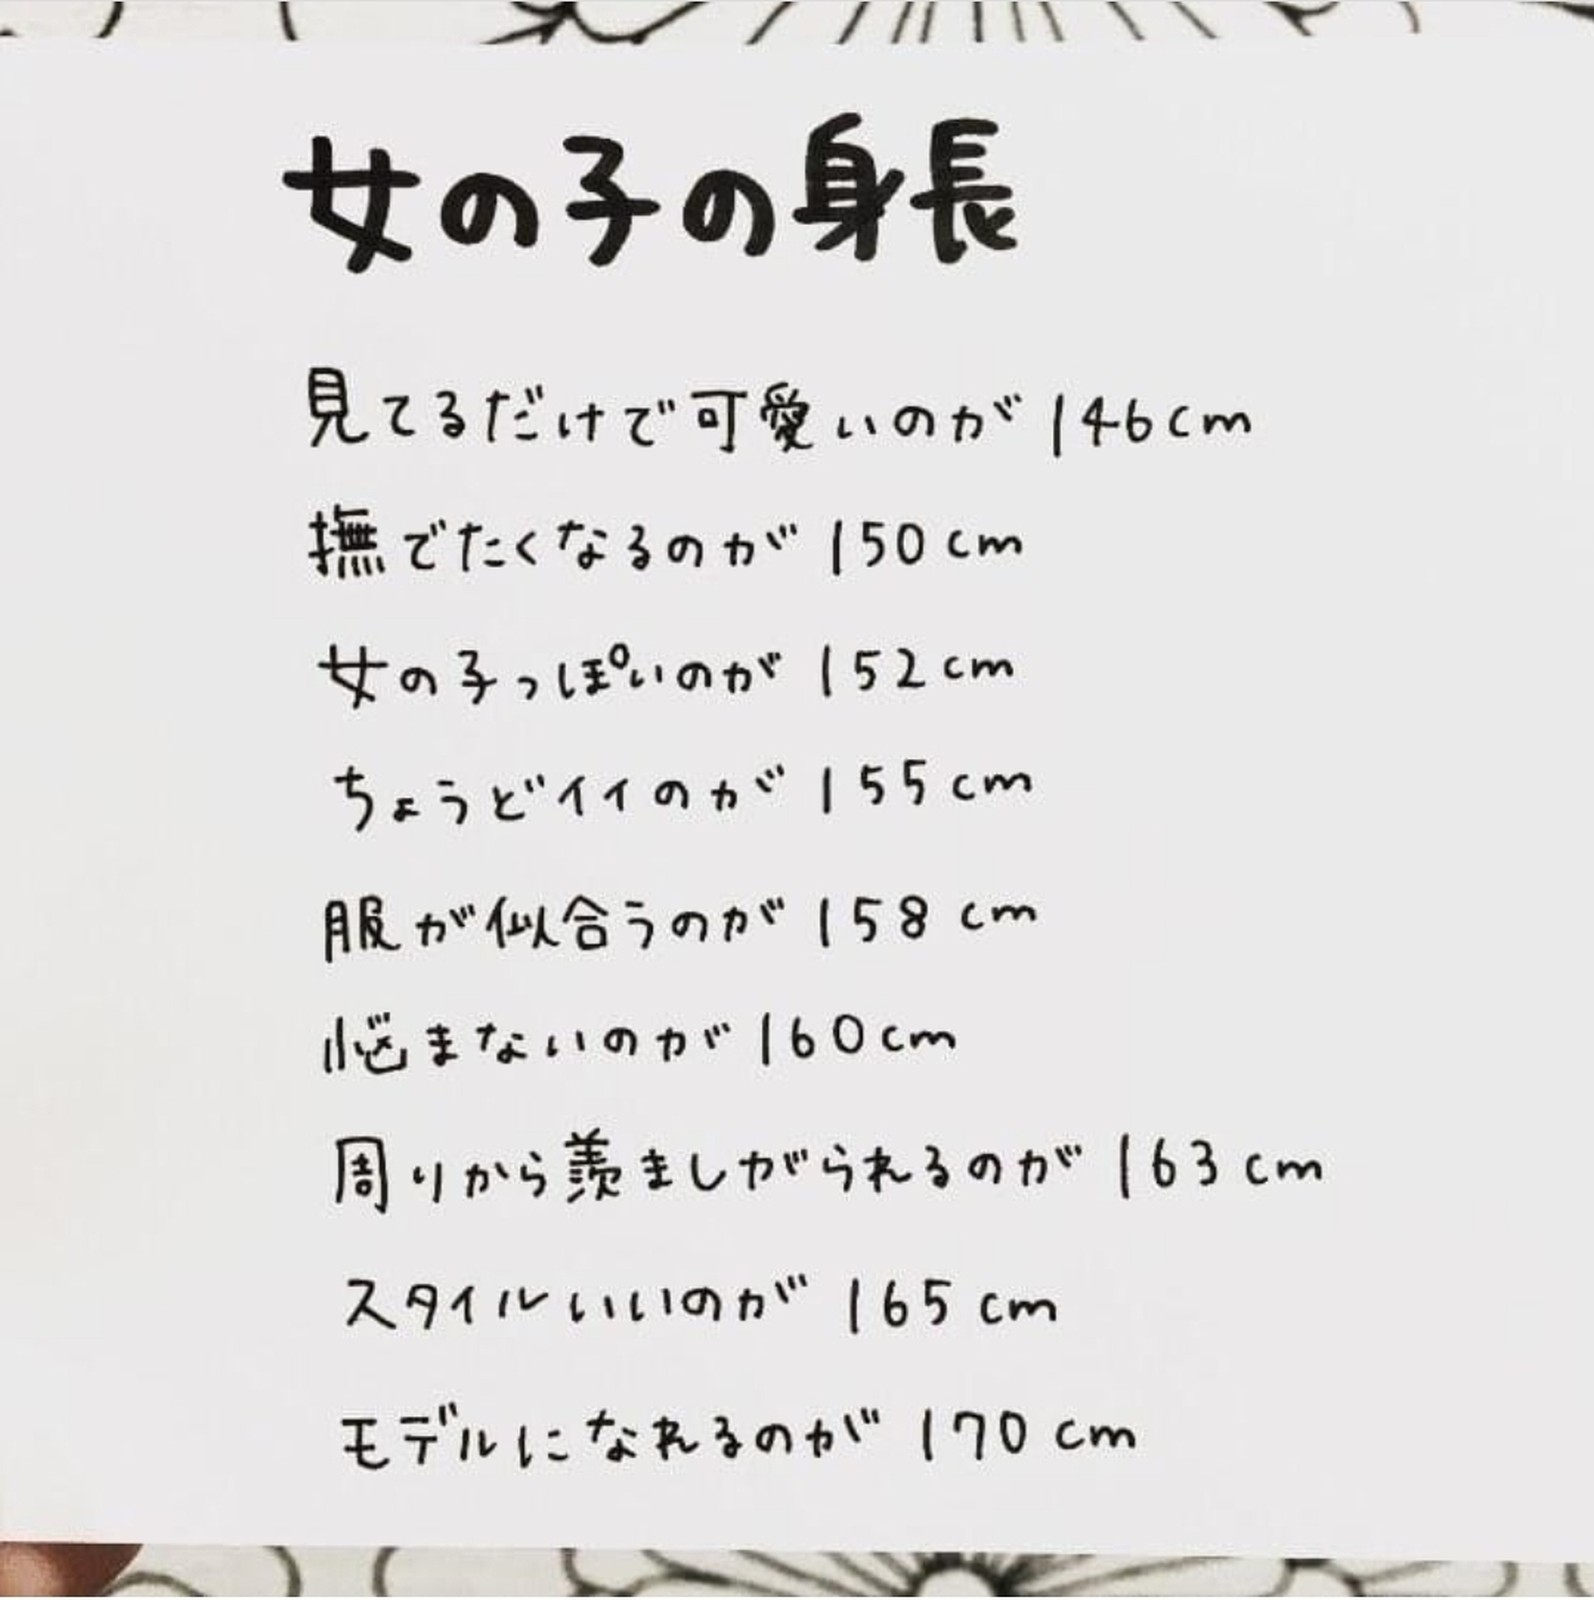 女の子の身長
見てるだけで可愛いのが146cm
撫でたくなるのが150cm
女の子っぽいのが152cm
ちょうどイイのが155cm
服が似合うのが158cm
悩まないのが160cm
周りから羨ましがられるのが163cm
スタイルいいのが165cm
モデルになれるのが170cm